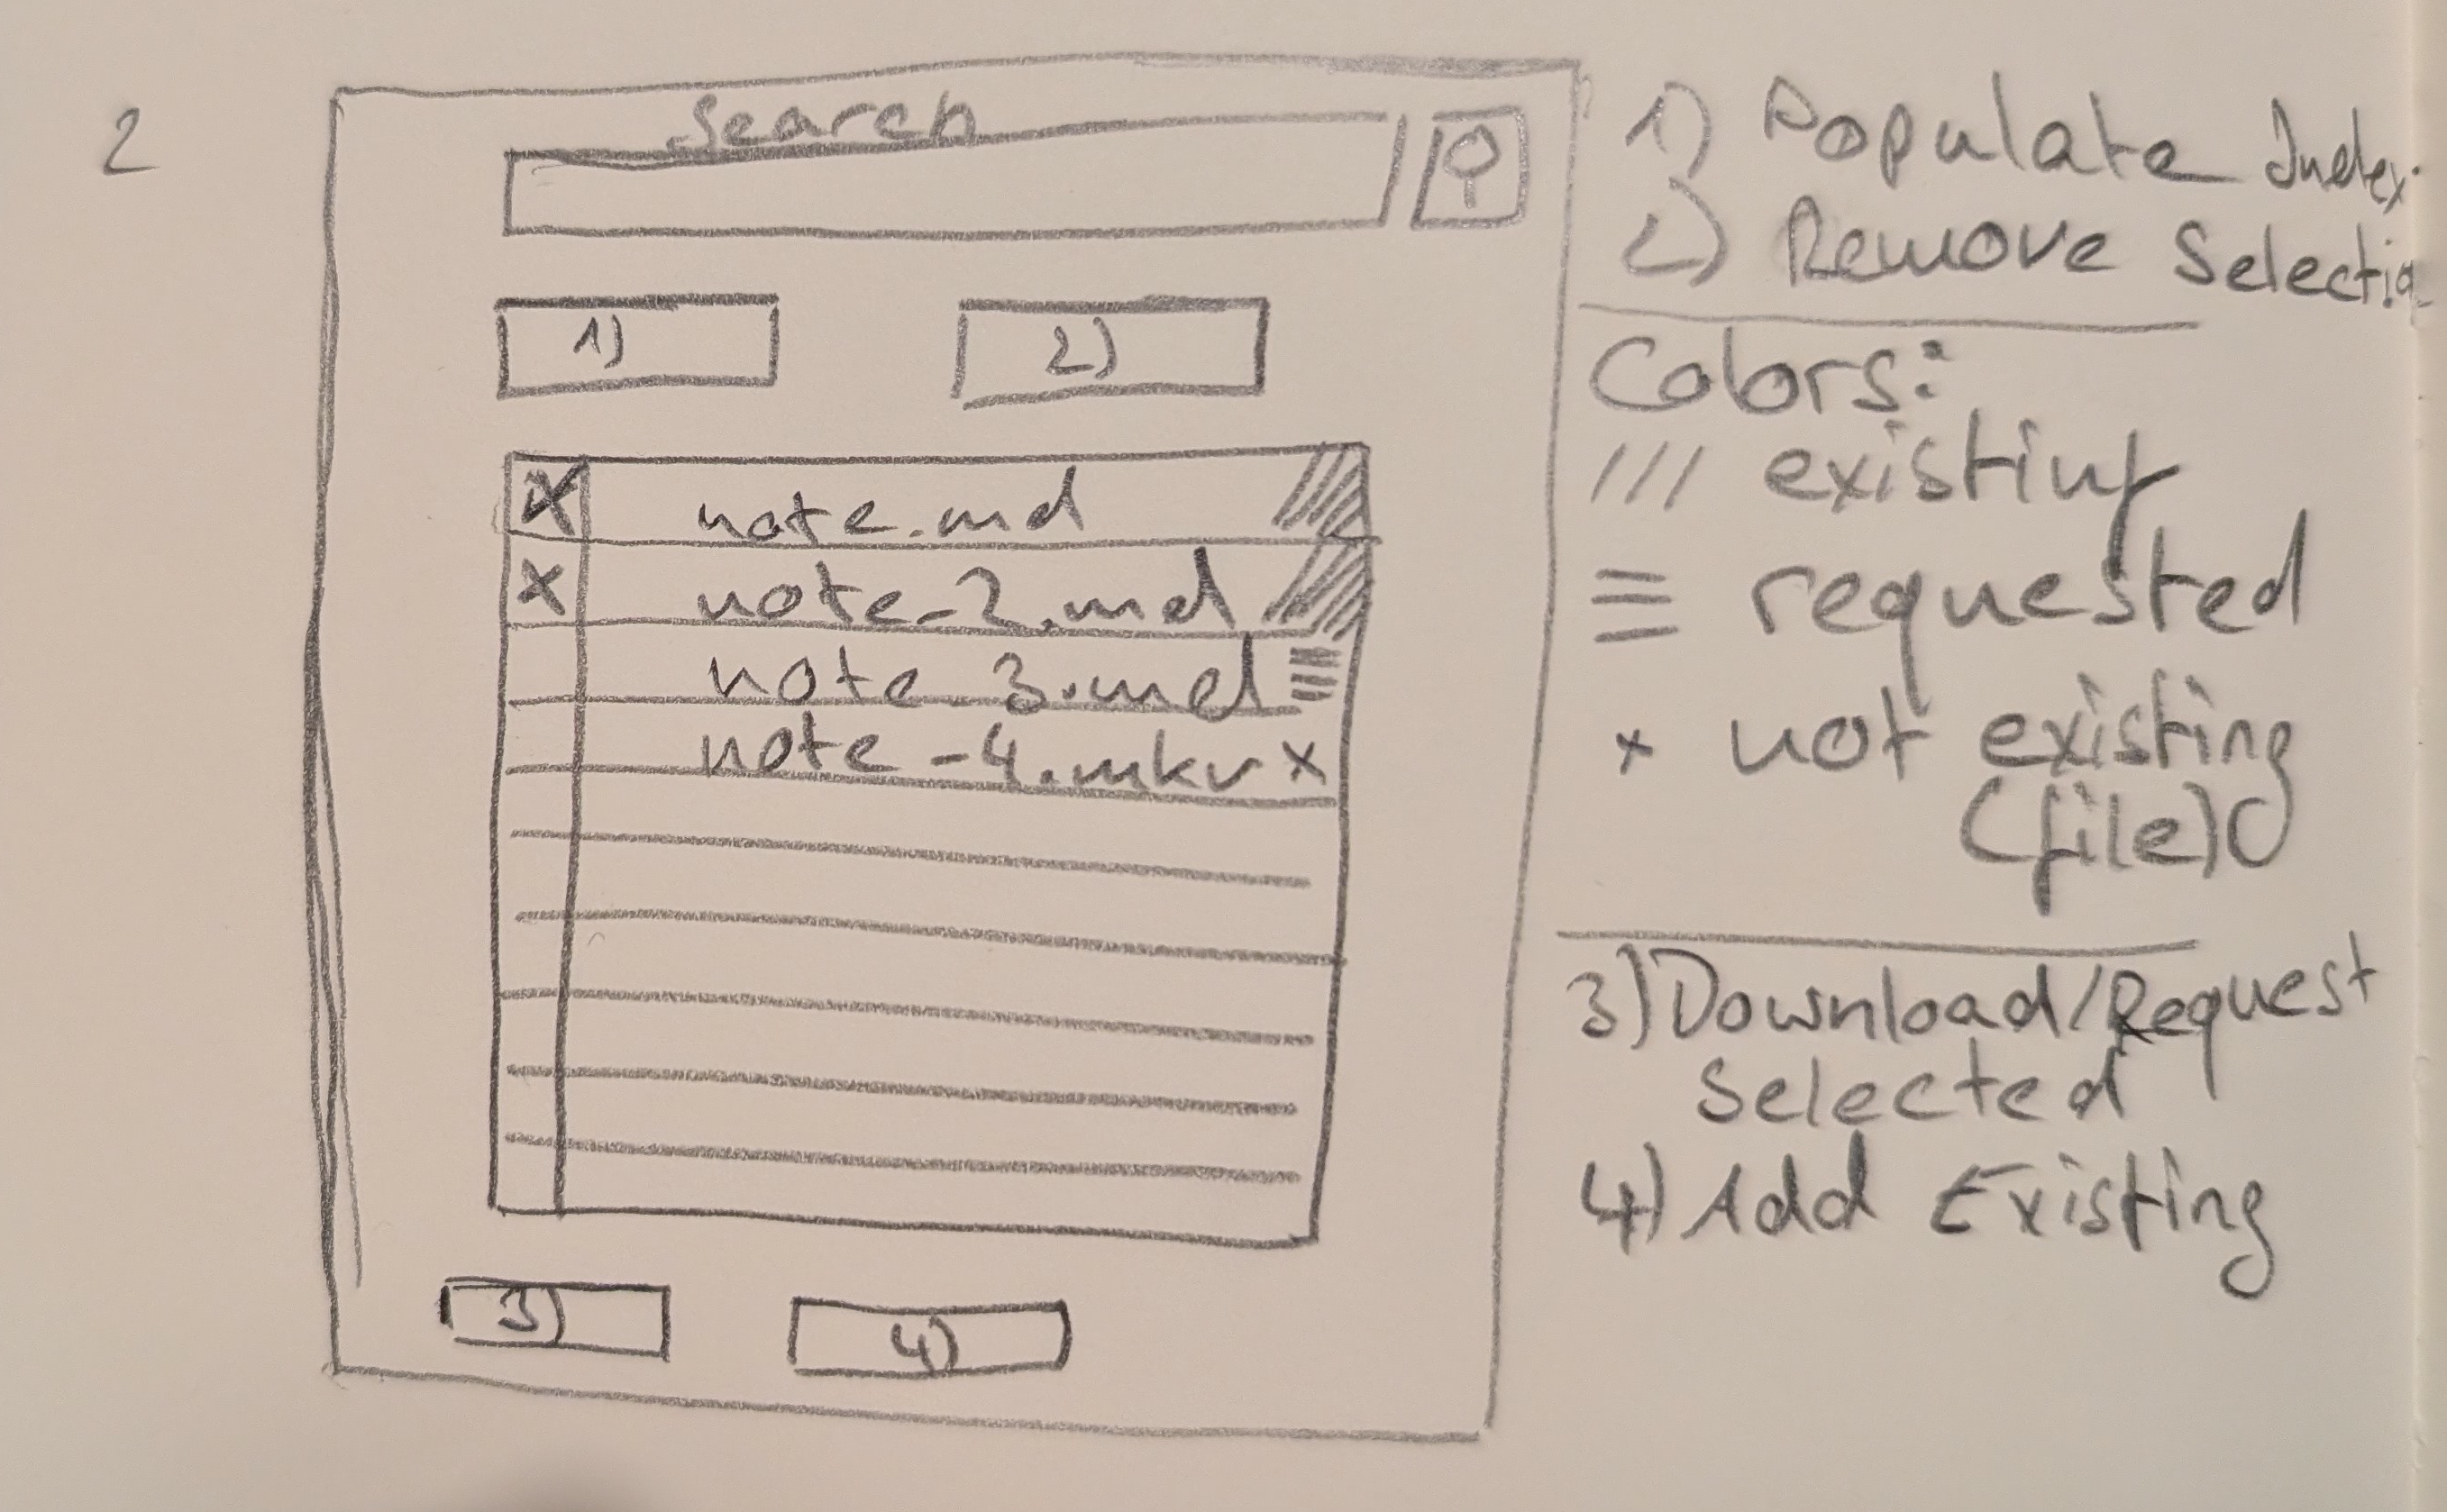 2
Search
1) 2)
X note.md
X note-2.md
note-3.md
note-4.mkv x
3) 4)
1) Populate Index
2) Remove
Colors:
/// existing
≡ requested
x not existing
(file)
3) Download/Request
Selected
4) Add Existing